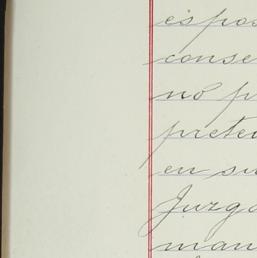 es pos
conse
no p
preten
en su
Juzga
man